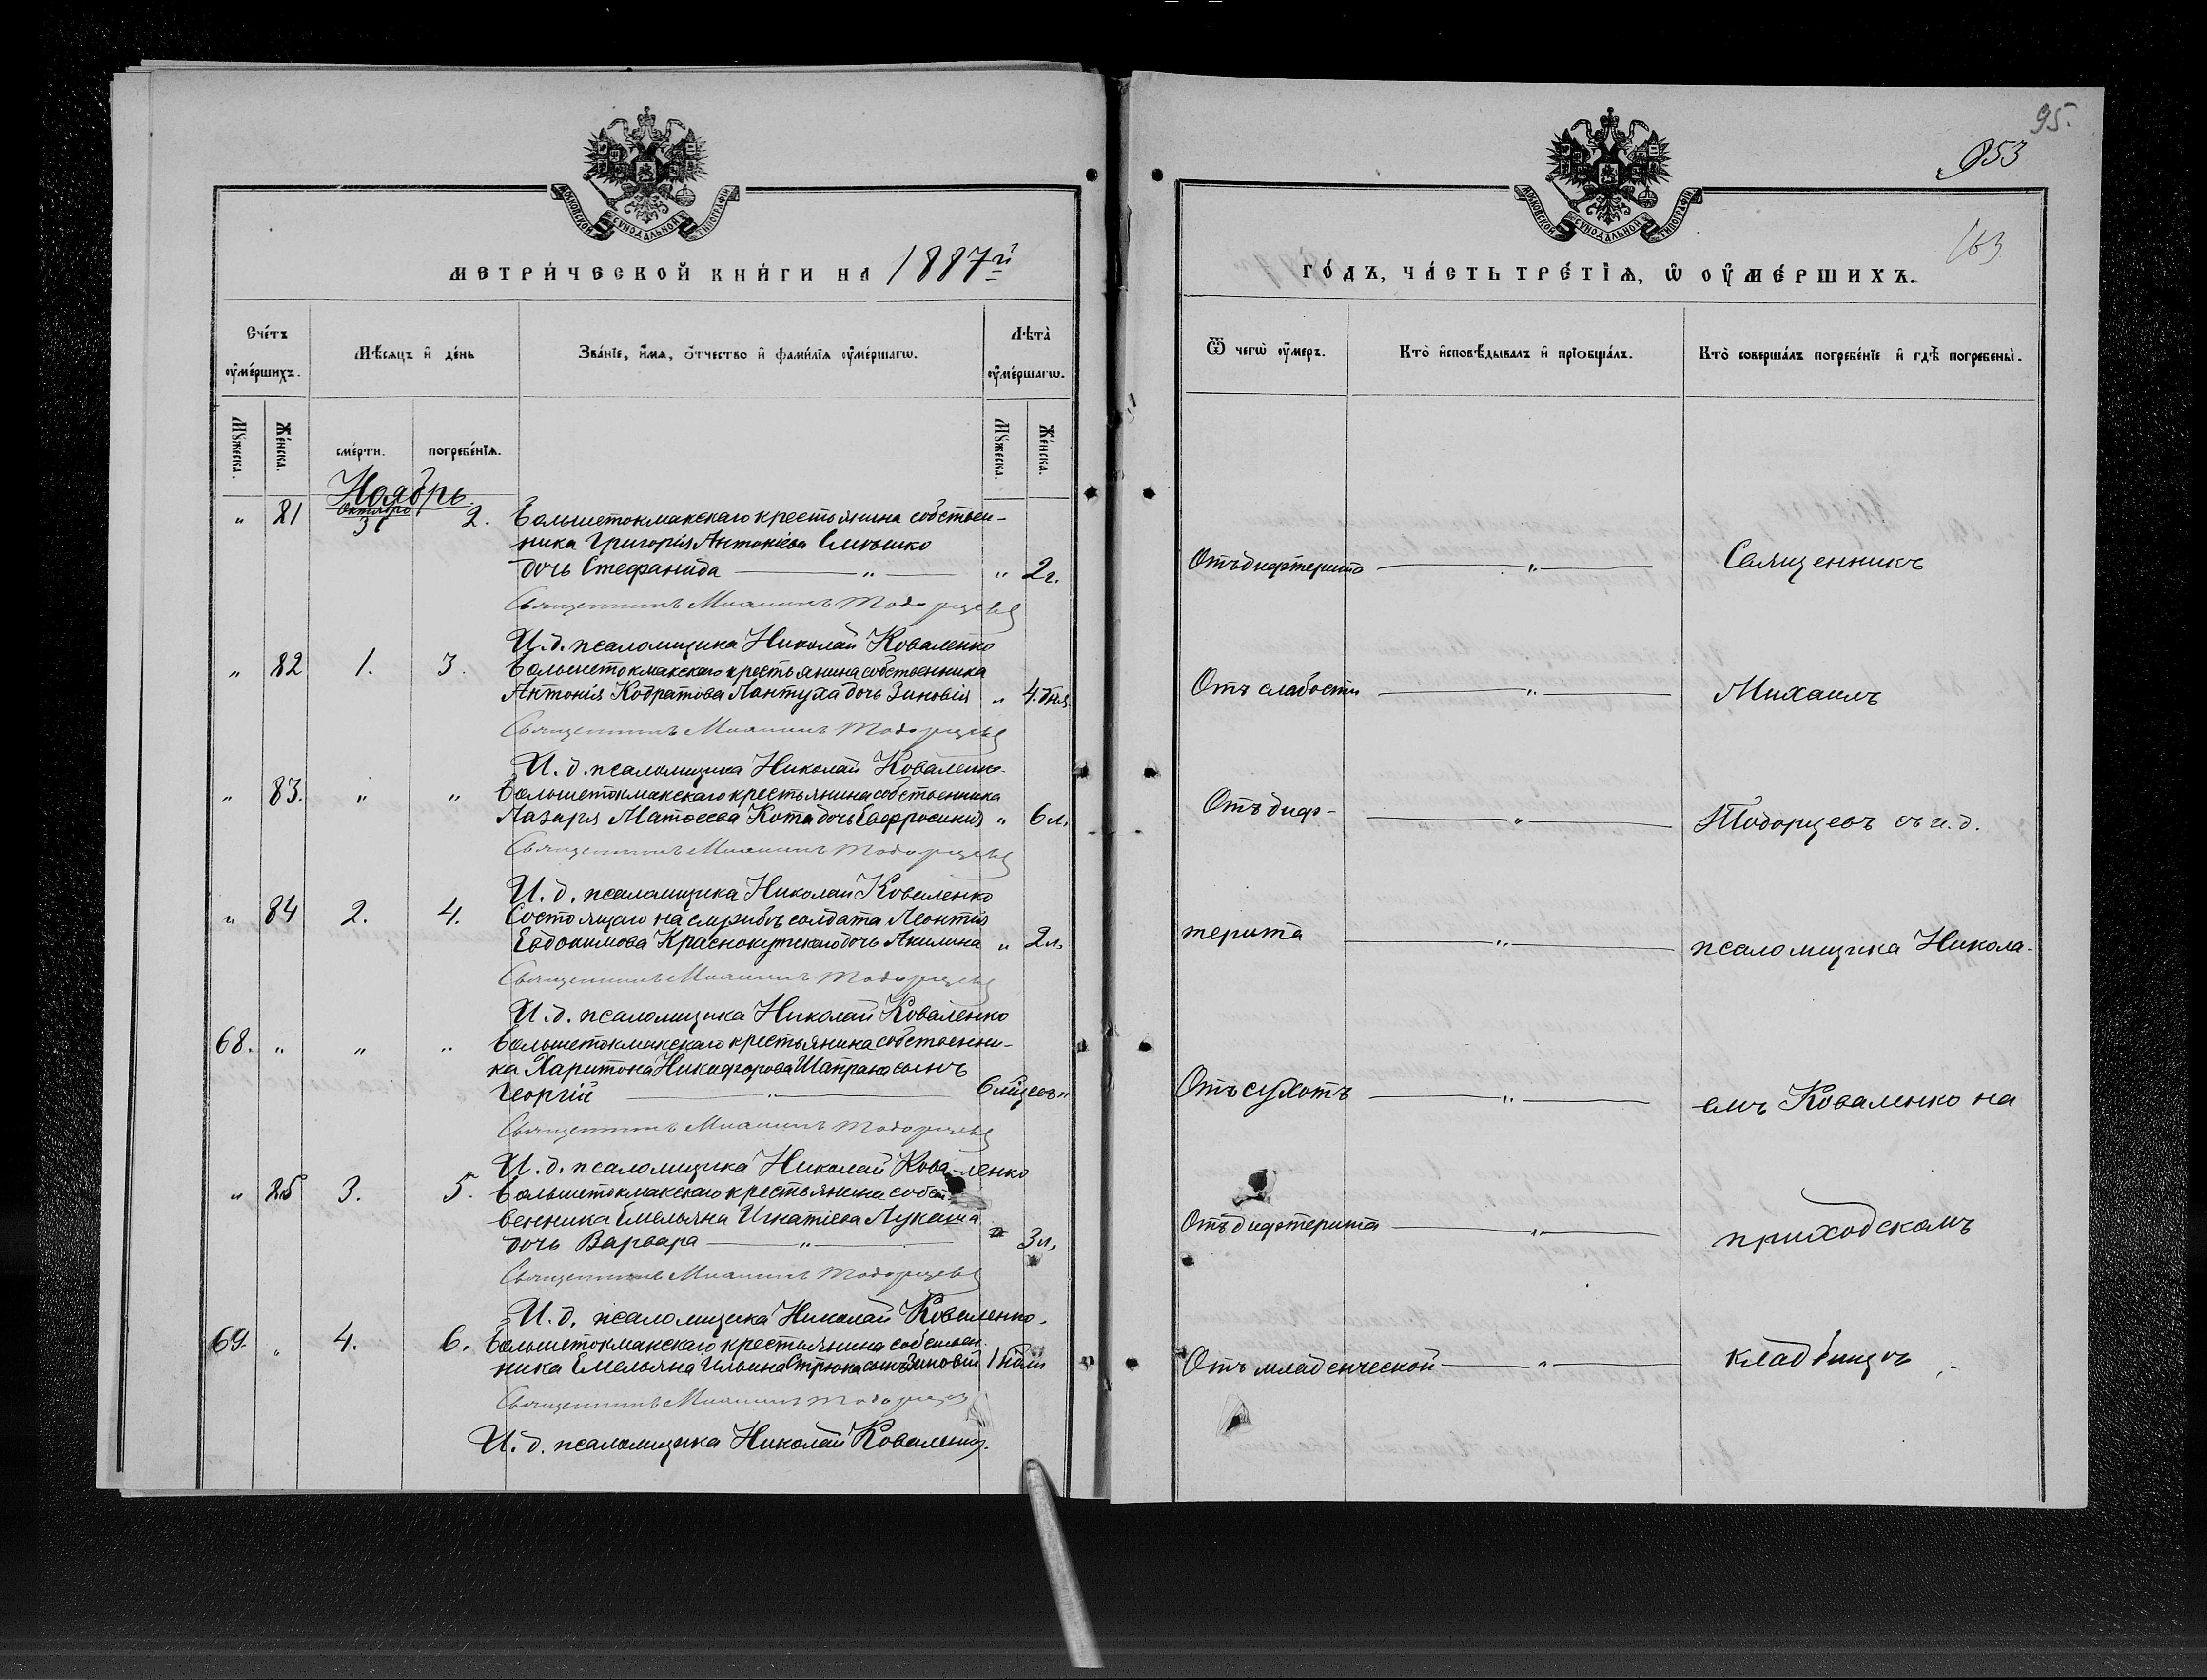 МОСКОВСКОЙ СѴНОДАЛЬНОЙ ТИПОГРАФІИ
МЕТРИ́ЧЕСКОЙ КНИ́ГИ НА 1887й
Сче́тъ ᲂу҆ме́ршихъ.
Мѣ́сяцъ и҆ де́нь
Зва́нїе, и҆́мя, ѻ҆́тчество и҆ фами́лїя ᲂу҆ме́ршагѡ.
Лѣта̀ ᲂу҆ме́ршагѡ.
Мꙋ́жеска.
Же́нска.
сме́рти.
погребе́нїя.
Мꙋ́жеска.
Же́нска.
Ноябрь.
Октября
„ 81 31 2. Большетокмакскаго крестьянина собствен-
ника Григорія Антоніева
дочь Стефанида — „ — „ 2 г.
Священникъ Михаилъ Тодорцевъ
И. д. псаломщика Николай Коваленко
„ 82 1. 3. Большетокмакскаго крестьянина собственника
Антонія Кодратова Лантуха дочь Зиновія „ 4. дня
Священникъ Михаилъ Тодорцевъ
И. д. псаломщика Николай Коваленко.
„ 83. „ „ Большетокмакскаго крестьянина собственника
Лазаря Матѳеева Кота дочь Евфросинія „ 6 л.
Священникъ Михаилъ Тодорцевъ
И. д. псаломщика Николай Коваленко
„ 84 2. 4. Состоящаго на службѣ солдата Леонтія
Евдокимова Краснокутскаго дочь Акилина „ 2 л.
Священникъ Михаилъ Тодорцевъ
И. д. псаломщика Николай Коваленко
68. „ „ „ Большетокмакскаго крестьянина собственни-
ка Харитона Никифорова Шапрана сынъ
Георгій — „ — 6 мѣсяц „
Священникъ Михаилъ Тодорцевъ
И. д. псаломщика Николай Коваленко
„ 85 3. 5. Большетокмакскаго крестьянина собст-
венника Емельяна Игнатіева Лукаша
дочь Варвара — „ — „ 3 л.
Священникъ Михаилъ Тодорцевъ
И. д. псаломщика Николай Коваленко.
69. „ 4. 6. Большетокмакскаго крестьянина собствен-
ника Емельяна Ильина Стрюка сынъ Зиновій 1
Священникъ Михаилъ Тодорцев
И. д. псаломщика Николай Коваленко.
95.
853
163
МОСКОВСКОЙ СѴНОДАЛЬНОЙ ТИПОГРАФІИ
ГО́ДЪ, ЧА́СТЬ ТРЕ́ТЇЯ, Ѡ҆ ОУ҆МЕ́РШИХЪ.
Ѿ чегѡ̀ ᲂу҆́меръ.
Кто̀ и҆сповѣ́дывалъ и҆ прїѻбща́лъ.
Кто̀ соверша́лъ погребе́нїе и҆ гдѣ̀ погребены̀.
Отъ дифтерита — „ — Священникъ
Отъ слабости — „ — Михаилъ
Отъ диф- — „ — Тодорцевъ съ и. д.
терита — „ — псаломщика Никола-
Отъ сухотъ — „ — емъ Коваленко на
Отъ дифтерита — „ — приходскомъ
Отъ младенческой — „ — кладбищѣ.